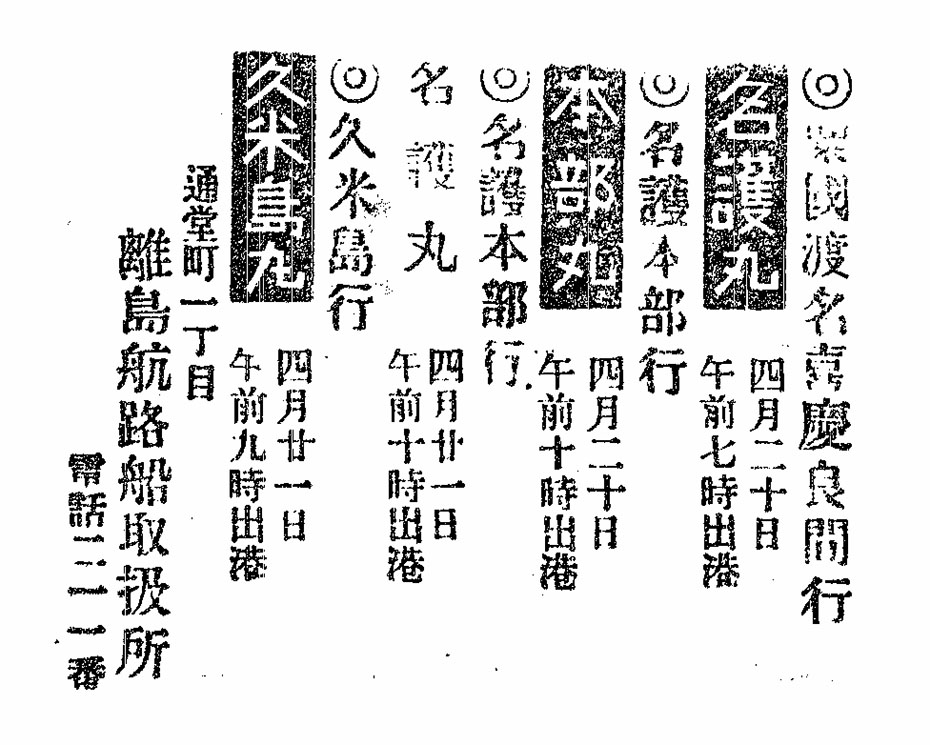 ◎粟國渡名喜慶良間行
名護丸
四月二十日
午前七時出港
◎名護本部行
本部丸
四月二十日
午前十時出港
◎名護本部行
名護丸
四月廿一日
午前十時出港
◎久米島行
久米島丸
四月廿一日
午前九時出港
通堂町一丁目
離島航路船取扱所
電話二二一番